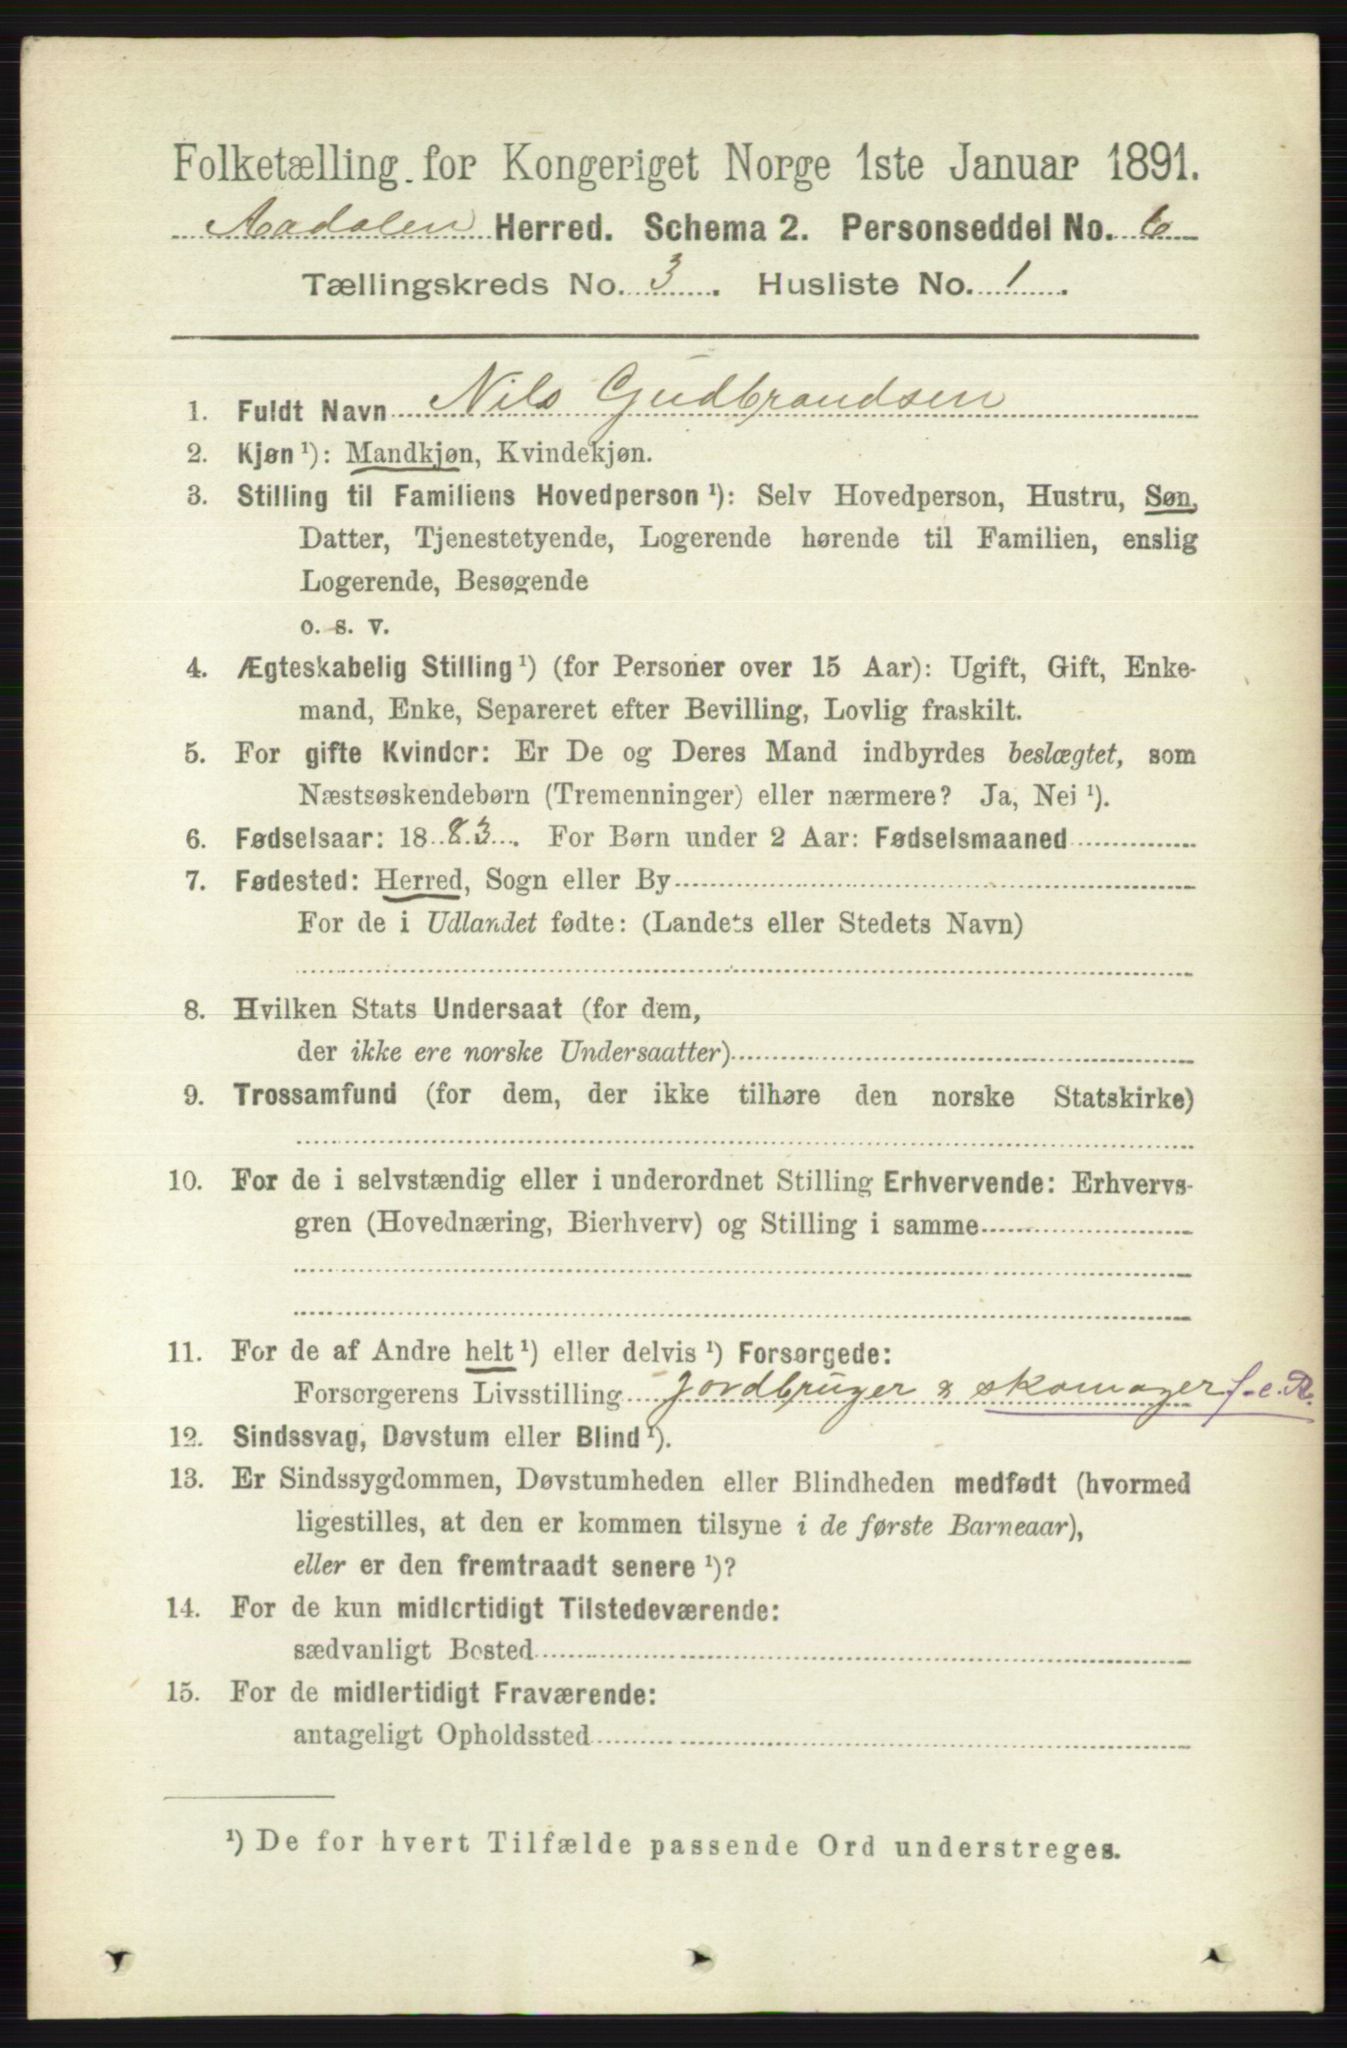 Folketælling for Kongeriget Norge 1ste Januar 1891.
Aadalen Herred. Schema 2. Personseddel No. 6
Tællingskreds No. 3. Husliste No. 1.
1. Fuldt Navn Nils Gudbrandsen
2. Kjøn ¹): Mandkjøn, Kvindekjøn.
3. Stilling til Familiens Hovedperson ¹): Selv Hovedperson, Hustru, Søn,
Datter, Tjenestetyende, Logerende hørende til Familien, enslig
Logerende, Besøgende
o. s. v.
4. Ægteskabelig Stilling ¹) (for Personer over 15 Aar): Ugift, Gift, Enke-
mand, Enke, Separeret efter Bevilling, Lovlig fraskilt.
5. For gifte Kvinder: Er De og Deres Mand indbyrdes beslægtet, som
Næstsøskendebørn (Tremenninger) eller nærmere? Ja, Nei ¹).
6. Fødselsaar: 1883. For Børn under 2 Aar: Fødselsmaaned
7. Fødested: Herred, Sogn eller By
For de i Udlandet fødte: (Landets eller Stedets Navn)
8. Hvilken Stats Undersaat (for dem,
der ikke ere norske Undersaatter)
9. Trossamfund (for dem, der ikke tilhøre den norske Statskirke)
10. For de i selvstændig eller i underordnet Stilling Erhvervende: Erhvervs-
gren (Hovednæring, Bierhverv) og Stilling i samme
11. For de af Andre helt ¹) eller delvis ¹) Forsørgede:
Forsørgerens Livsstilling Jordbruger & skomager f.e.R.
12. Sindssvag, Døvstum eller Blind ¹).
13. Er Sindssygdommen, Døvstumheden eller Blindheden medfødt (hvormed
ligestilles, at den er kommen tilsyne i de første Barneaar),
eller er den fremtraadt senere ¹)?
14. For de kun midlertidigt Tilstedeværende:
sædvanligt Bosted
15. For de midlertidigt Fraværende:
antageligt Opholdssted
¹) De for hvert Tilfælde passende Ord understreges.